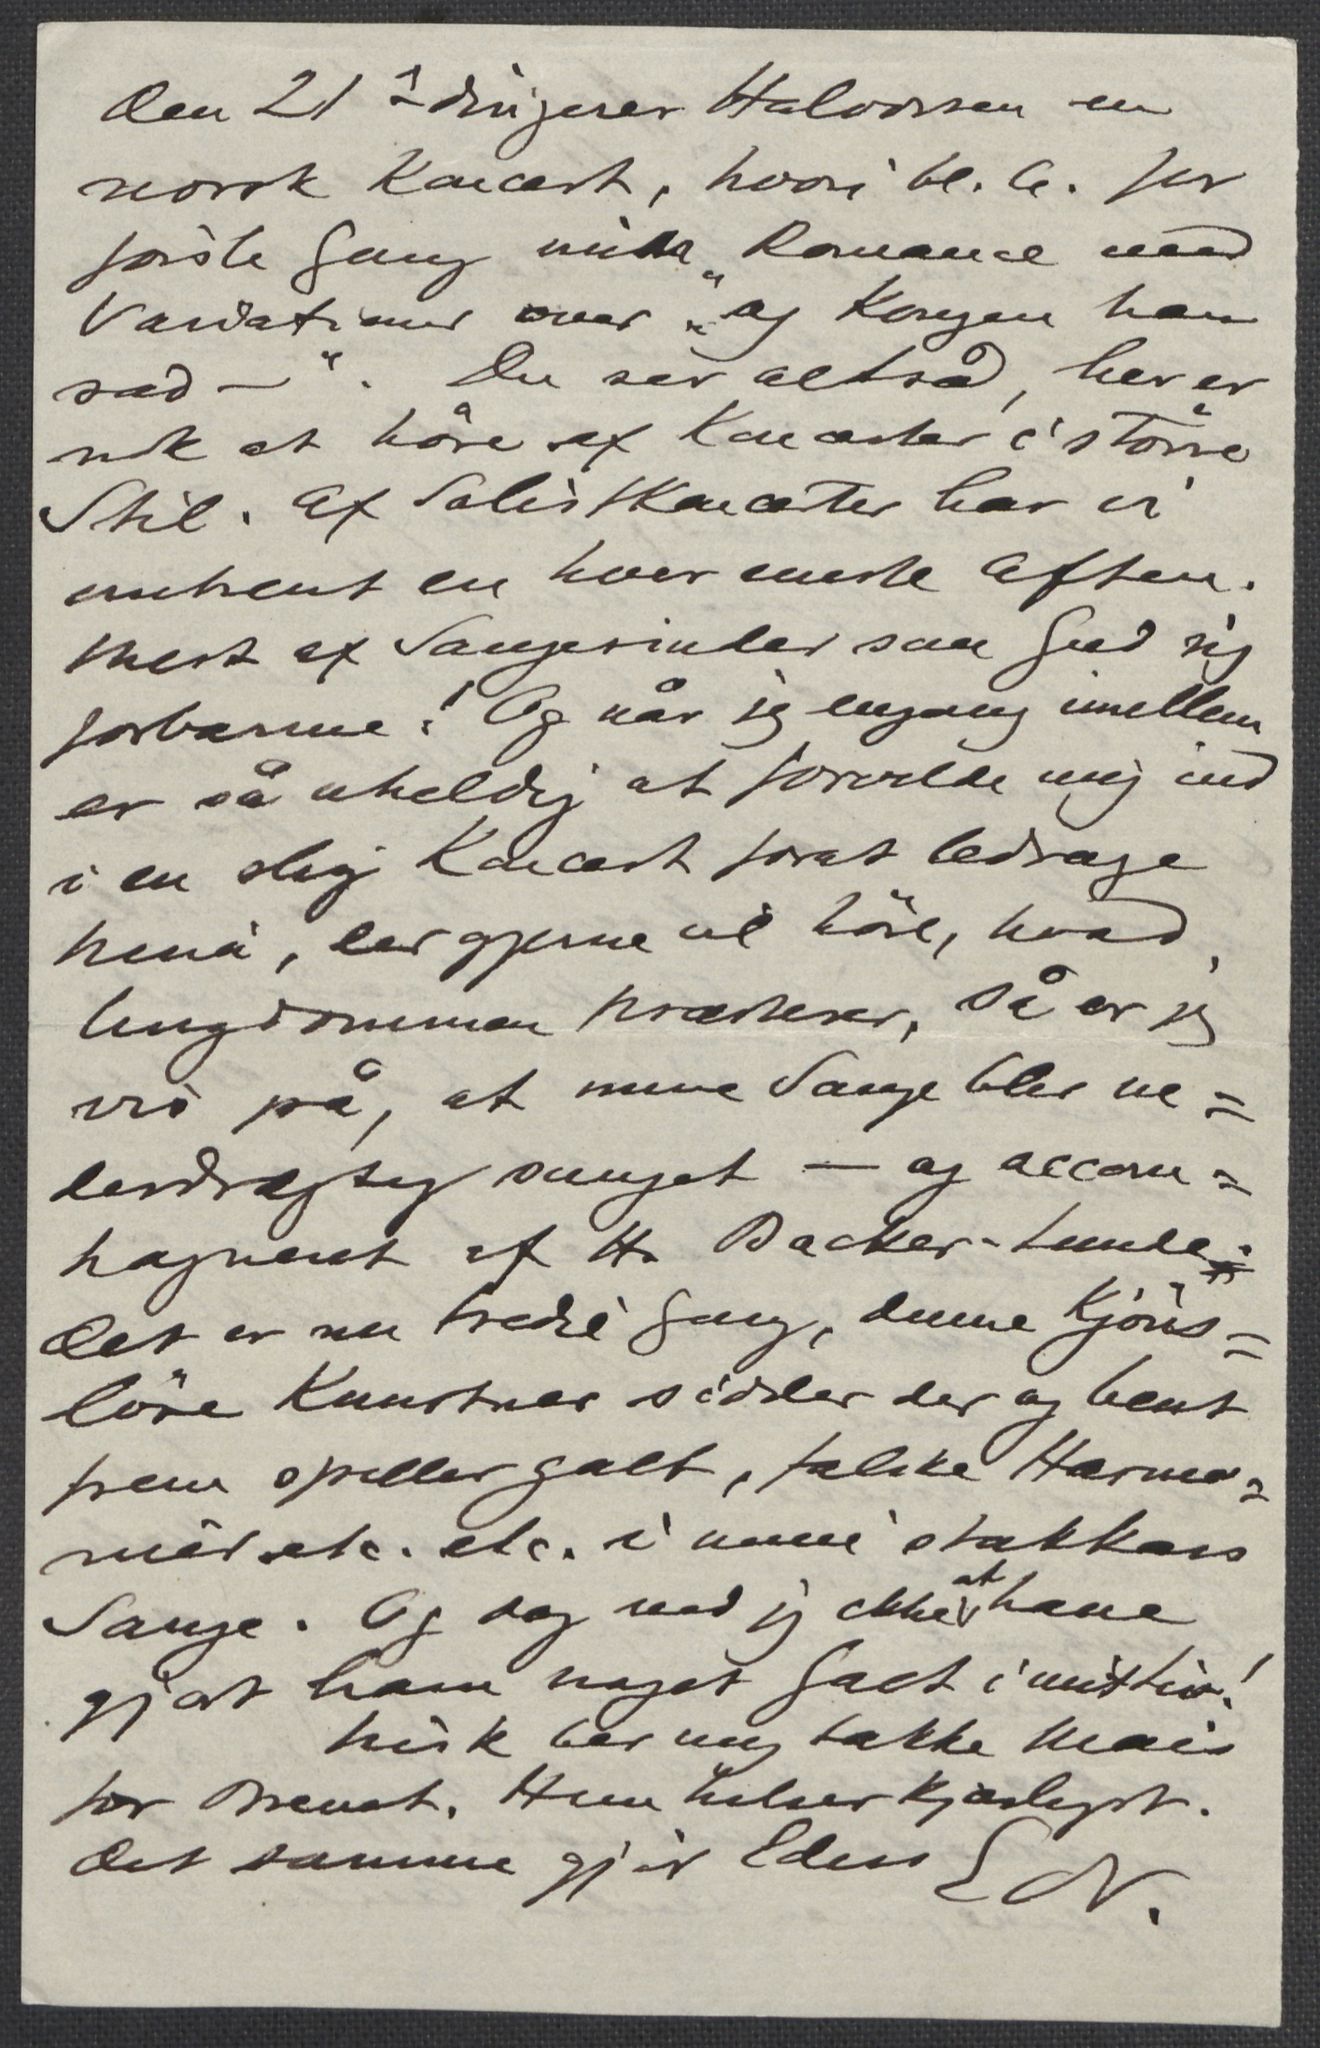 Den 21de dirigerer Halvorsen en
norsk Koncert, hvori bl. A. for
förste Gang min „Romance med
Variationer over „og Kongen han
sad –". Du ser altså, her er
nok at höre af Koncerter i större
Stil. Af Solistkoncerter har vi
omtrent en hver eneste Aften.
Mest af Sangerinder som Gud sig
forbarme! Og når jeg engang imellem
er så uheldig at forvilde mig ind
i en slig Koncert forat ledsage
Nina, der gjerne vil höre, hvad
Ungdommen præsterer, så er jeg
vis på, at mine Sange blir ne=
derdrægtig sunget – og accom=
pagneret af Hr Backer-Lunde.
Det er nu tredie Gang, denne kjöns=
löse Kunstner sidder der og bent
frem spiller galt, falske Harmo=
nier etc. etc. i mine stakkars
Sange. Og dog ved jeg ikke at have
gjort ham noget Galt i mit Liv!
Nisk ber mig takke Mais
for Brevet. Hun hilser kjærligst.
Det samme gjör Eders